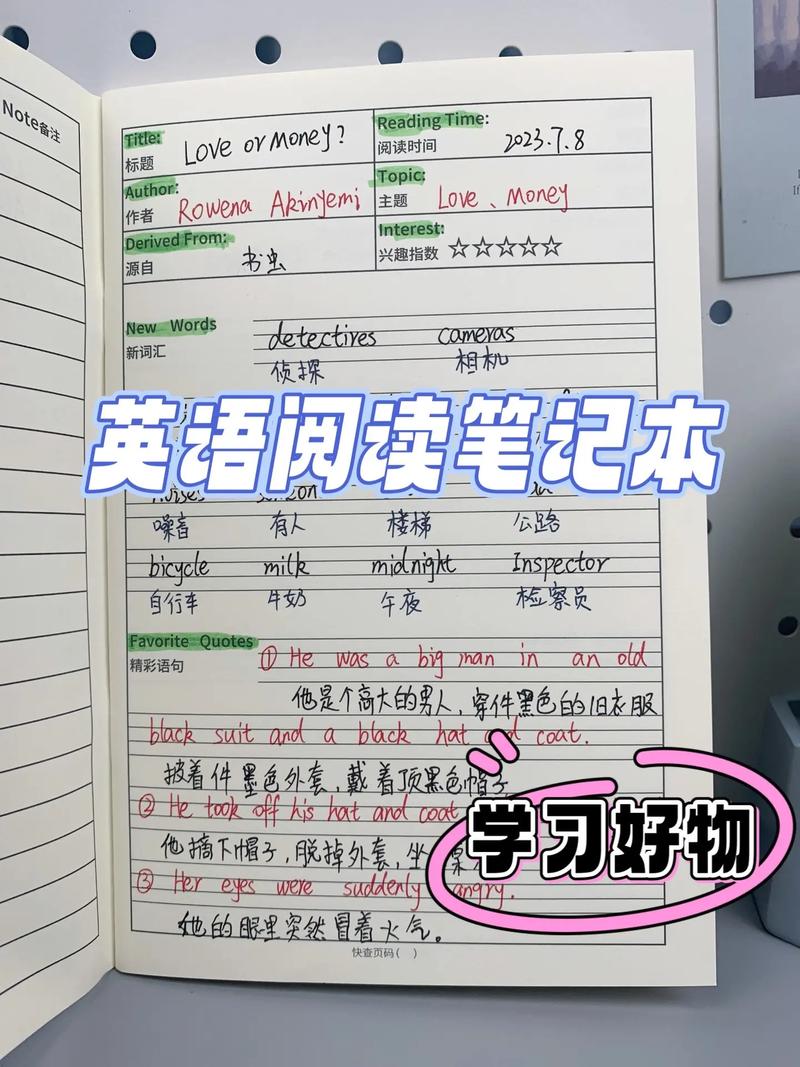 Note备注
Title:
标题
Love or Money?
Reading Time:
阅读时间
2023.7.8
Author:
作者
Rowena Akinyemi
Topic:
主题
Love、Money
Derived From:
源自
书虫
Interest:
兴趣指数 ☆☆☆☆☆
New Words
新词汇
detectives cameras
侦探 相机
英语阅读笔记本
噪音 有人 楼梯 公路
bicycle milk midnight Inspector
自行车 牛奶 午夜 检察员
Favorite Quotes
精彩语句
① He was a big man in an old
他是个高大的男人，穿件黑色的旧衣服
black suit and a black hat and coat.
披着件墨色外套，戴着顶黑色帽子
② He took off his hat and coat
他摘下帽子，脱掉外套，坐
学习好物
③ Her eyes were suddenly angry.
她的眼里突然冒着火气。
快查页码( )